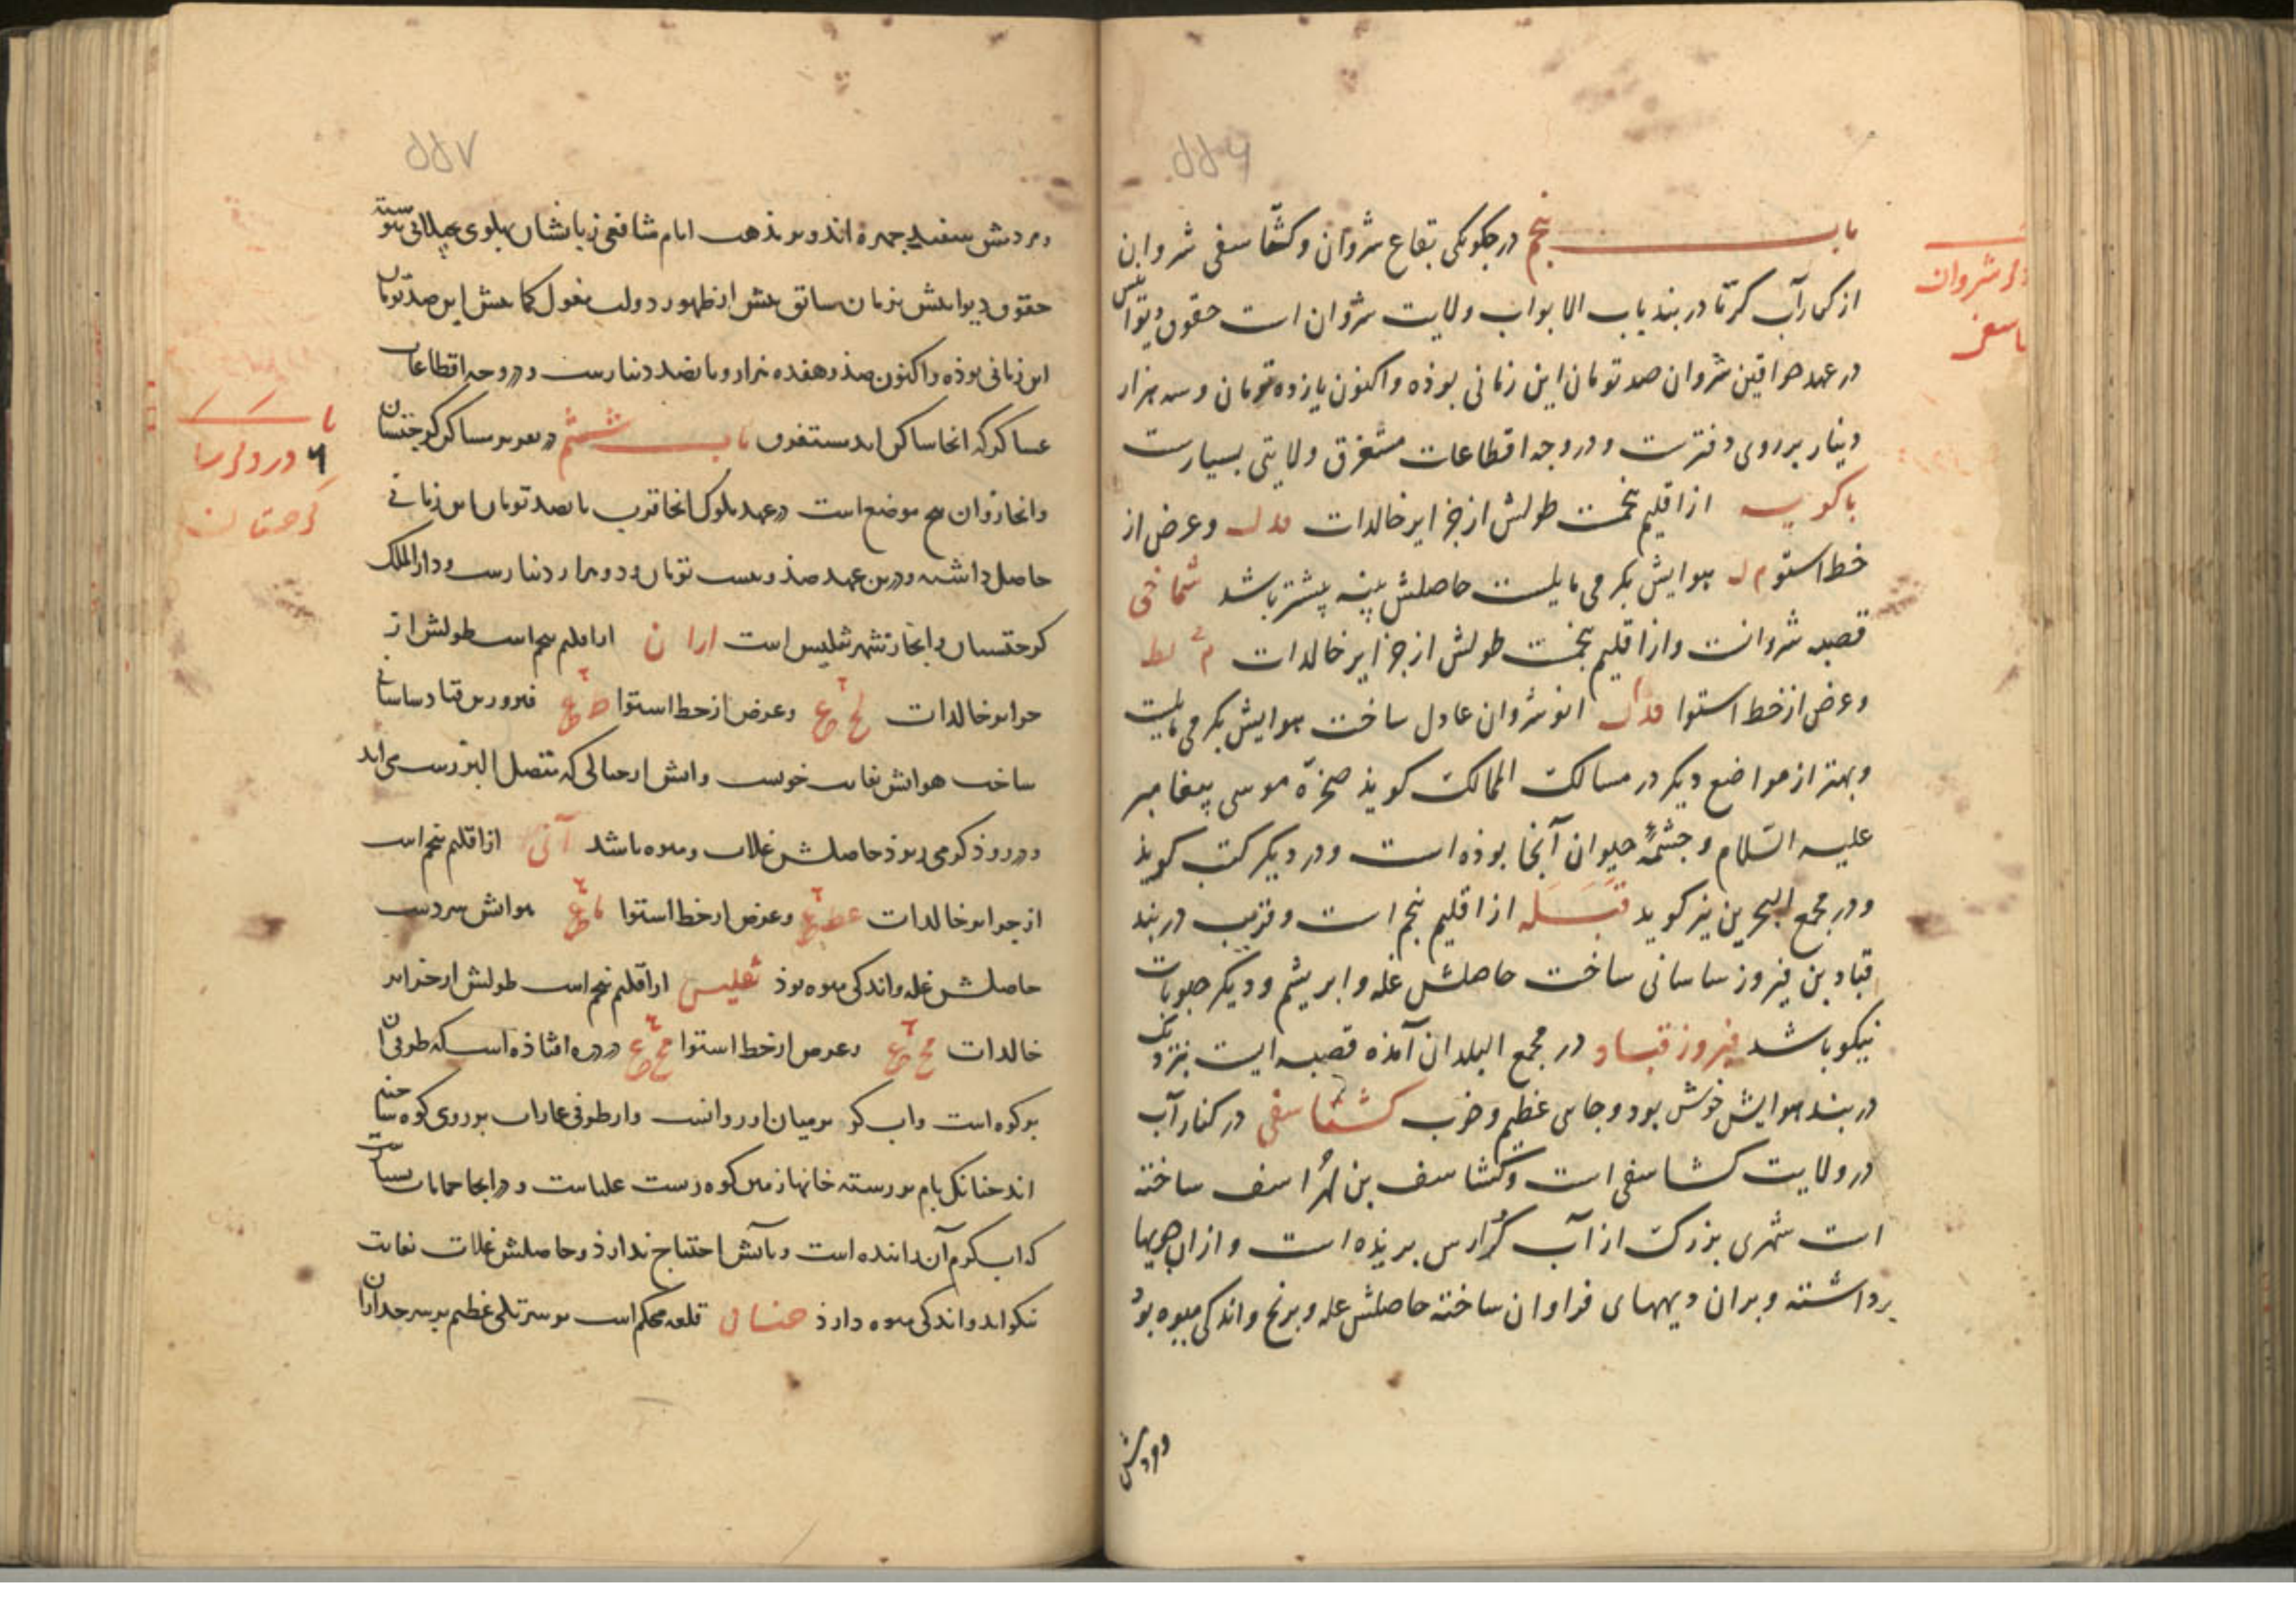 ۵۵۶
باب پنجم در چکونکی بقاع شروان و کشتاسفی شروان
از کنار آب کر تا دربند باب الابواب ولایت شروان است حقوق دیوانیش
در عهد خواقین شروان صد تومان این زمانی بوذه و اکنون یازده تومان و سه هزار
دینار بر روی دفترست و در وجه اقطاعات متفرق ولایتی بسیارست
باکویه از اقلیم پنجمست طولش از جزایر خالدات فدل و عرض از
خط استوا مل هوایش بکرمی مایلست حاصلش پنبه پیشتر باشد شماخی
قصبه شروانست و از اقلیم پنجمست طولش از جزایر خالدات
و عرض از خط استوا انوشروان عادل ساخت هوایش بکرمی مایلست
و بهتر از مواضع دیکر در مسالک الممالک کویذ صخرة موسی پیغامبر
علیه السلام و جشمه حیوان آنجا بوذه است و در دیکر کتب کویذ
و در مجمع البحرین نیز کوید قبله از اقلیم پنجم است و قریب دربند
قباد بن فیروز ساسانی ساخت حاصلش غله و ابریشم و دیکر حبوبات
نیکو باشد فیروز قباد در مجمع البلدان آمذه قصبه ایست نزدیک
دربند هوایش خوش بود و جای عظیم و خوب کشتاسفی در کنار آب
در ولایت کشتاسفی است و کشتاسف بن لهراسف ساخته
است نهری بزرک از آب کر و ارس بریذه است و از ان جویها
برداشته و بران دیههای فراوان ساخته حاصلش غله و برنج و اندکی میوه بوذ
ومردمش
ذکر شروان
۵۵۷
ومردمش سفید جهره اند و بر مذهب امام شافعی زبانشان پهلوی بجیلانی بسته
حقوق دیوانیش بزمان سابق پیش از ظهور دولت مغول کمابیش این صد تومان
این زمانی بوذه و اکنون صذ و هفده هزار و پانصد دینارست و در وجه اقطاعات
عساکر که آنجا ساکن اند متفرق باب ششم در کرجستان
و ابخاز و ان پنج موضع است در عهد ملوک آنجا قریب پانصد تومان این زمانی
حاصل داشته و درین عهد صذ و بیست تومان و دو هزار دینارست و دار الملک
کرجستان و ابخاز شهر تفلیس است اران از اقلیم پنجم است طولش از
جزایر خالدات و عرض از خط استوا فیروز بن قباد ساسانی
ساخت هوایش بغایت خوبست و آبش از جبالی که متصل البرزست می آید
و در روذ کر می ریزد حاصلش غلات و میوه باشد آنی از اقلیم پنجم است
از جزایر خالدات و عرض از خط استوا هوایش سردست
حاصلش غله و اندکی میوه بوذ تفلیس از اقلیم پنجم است طولش از جزایر
خالدات و عرض از خط استوا در دره افتاذه است که طرفی ان
بر کوه است و آب کر بر میان او روانست و از طرفی عمارات بر روی کوه ساخته
اند جنانک بام بر رسته خانها زمین کوه رسته علیاست و در آنجا حمامات بسیارست
که آب کرم آن زاینده است و بآتش احتیاج ندارذ و حاصلش غلات بغایت
نیکو اید و اندکی میوه دارذ خنان قلعه محکم است بر سر تلی عظیم بر سرحد اران
باب
۶ در ذکر
کرجستان